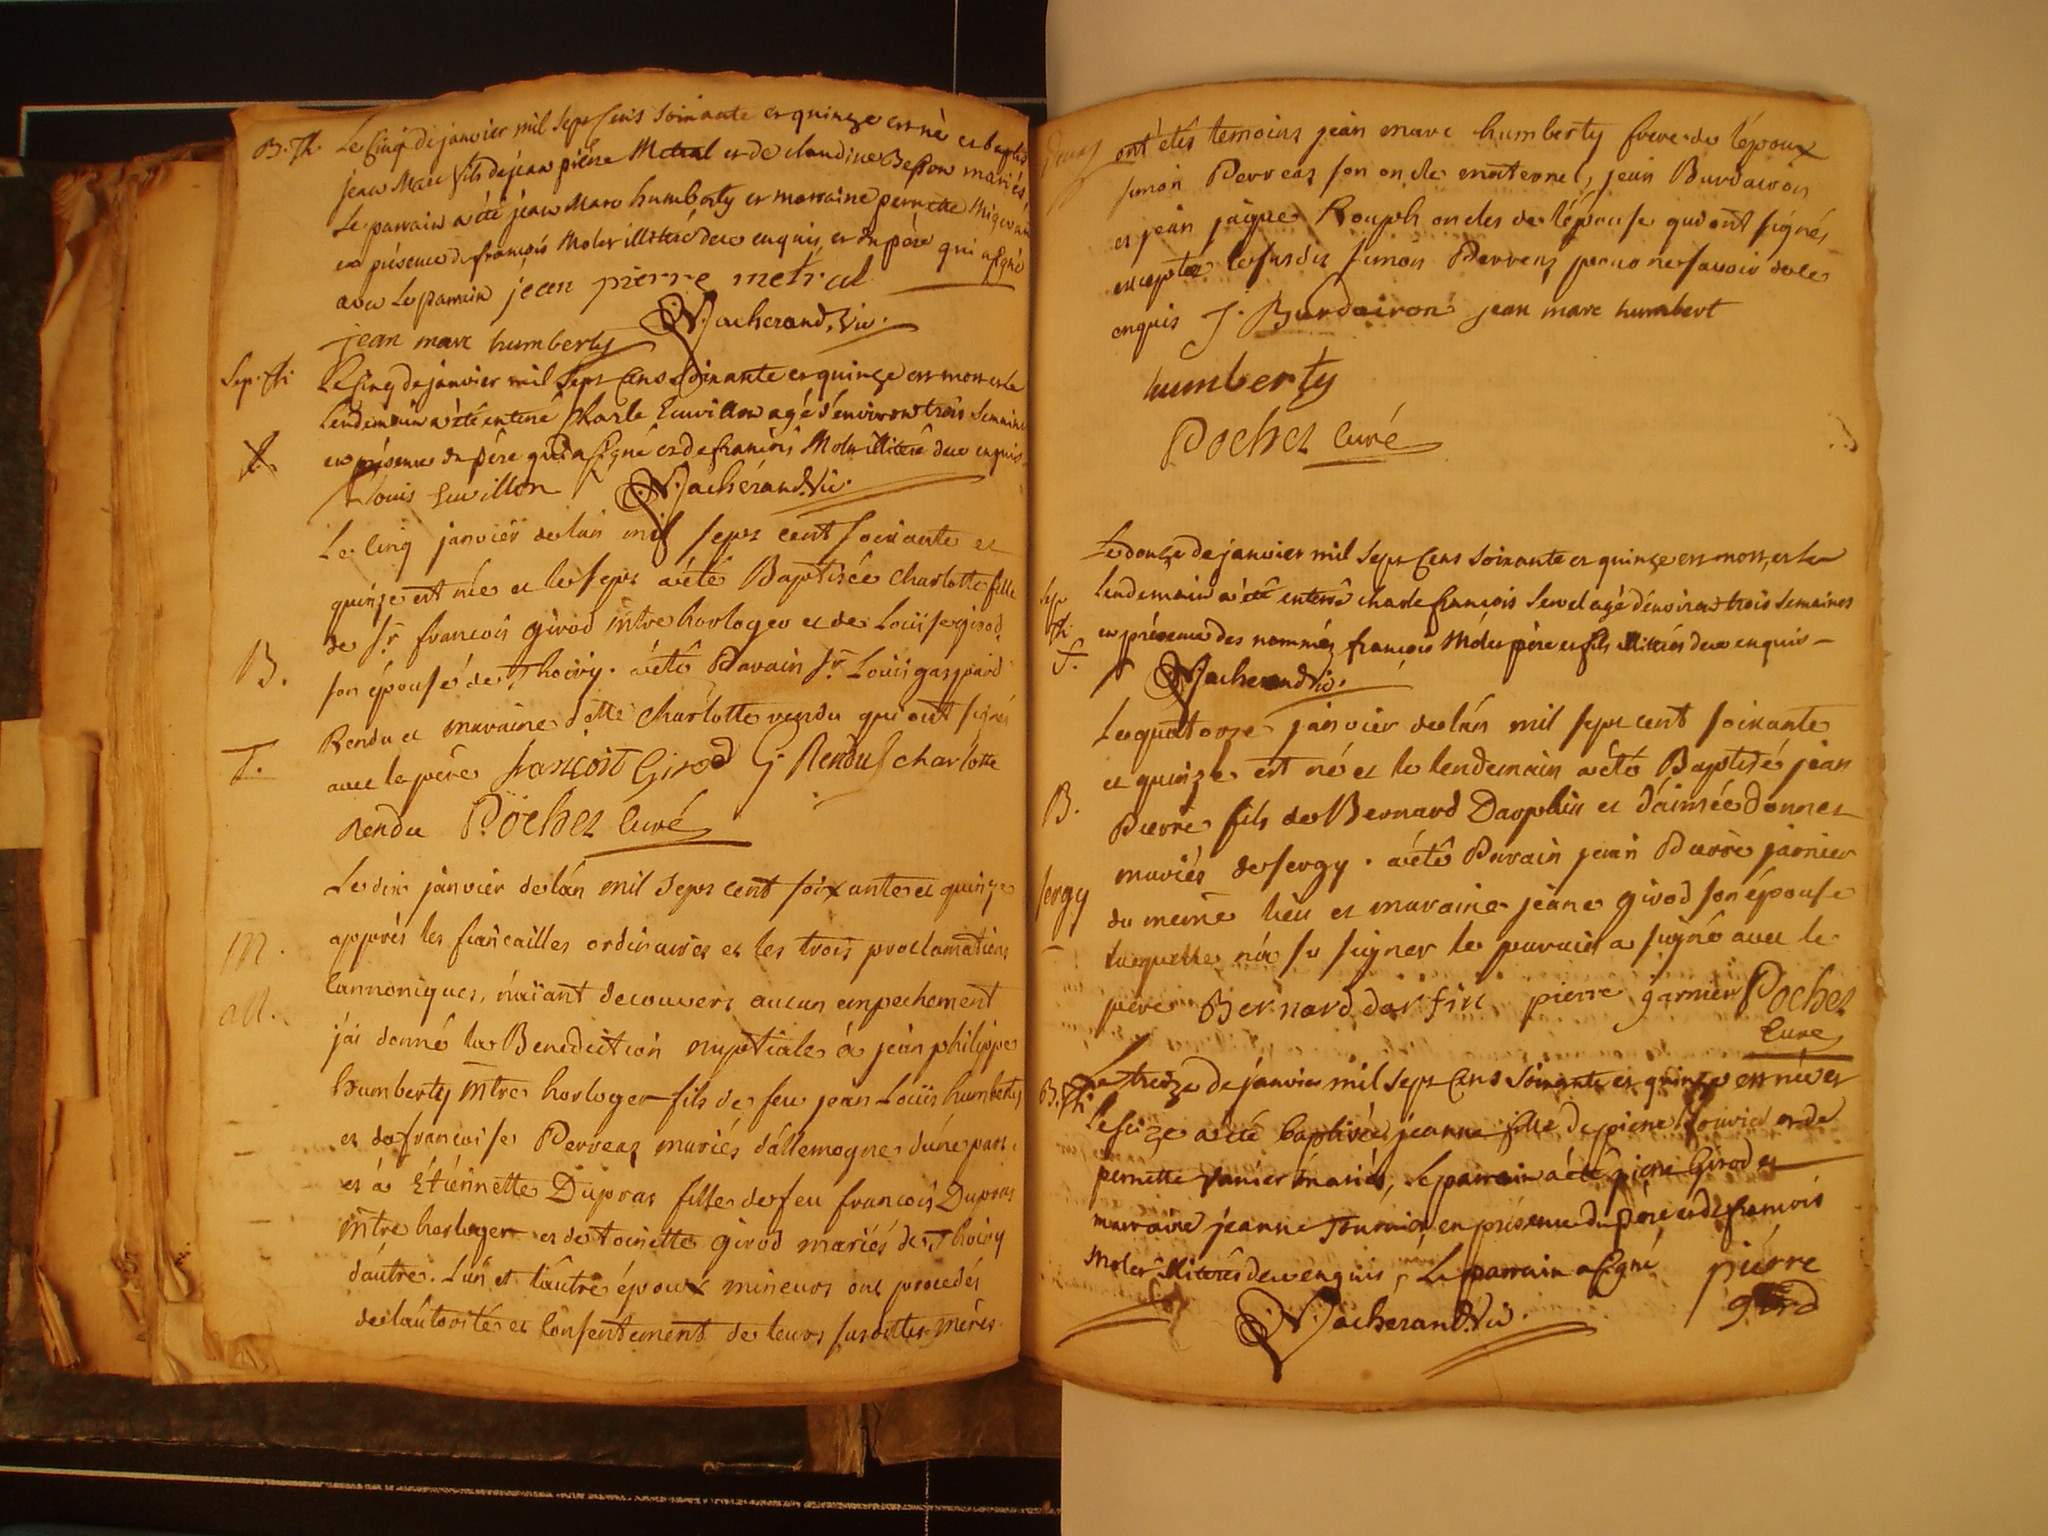 B. Th. Le Cinq de janvier mil Sept Cens Soixante et quinze est né et baptisé
jean Marc fils de jean pierre Metral et de claudine Besson mariés
Le parrain a été jean Marc humberty et marraine pernette
en présence de françois Moler illiteré de ce enquis, et du père qui a signé
avec le parrain jean pierre metral
jean marc humberty N. Jacherand. Vic.
Sep. Th. Le Cinq de janvier mil Sept Cens Soixante et quinze est mort et le
lendemain a été enterré Charle Cuvillon agé d'environ trois Semaines
en présence du père qui a signé et de françois Moler illiteré de ce enquis
Louis Cuvillon N. Jacherand. Vic.
Le cinq janvier de lán mil sept cent soixante et
quinze est née et le sept a été Baptisée charlotte fille
de Sr. francois girod mtre horloger et de Loüise girod
B. son épouse de Thoiry. a été Parain Sr. Louis gaspard
Rendu et maraine dette charlotte rendu qui ont signés
T. avec le père françoit Girod G. Rendu charlotte
Rendu Pöchet Curé
Le dix janvier de lán mil sept cent soixante et quinze
apprès les fiancailles ordinaires et les trois proclamations
M. Cannoniques, náïant decouvert aucun empechement
All. j'ai donné la Benediction nuptiale á jean philippe
humberty mtre horloger fils de feu jean Loüis humberty
et de francoise Perreaz mariés dállemogne dúne part,
et á Étiénnette Dupraz fille de feu francois Dupraz
mtre horloger et de toinette girod mariés de Thoiry
dáutre. Lún et láutre époux mineurs ont procedés
de láutorité et Consentement de leurs susdittes mères
ont étés temoins jean marc humberty frere de lépoux
simon Perreaz son oncle maternel, jean Burdairon
et jean jaque Rouph oncles de lépouse qui ont signés
excepté le susdit simon Perreaz pour ne savoir de ce
enquis J. Burdairon jean marc humbert
humberty
Pochet Curé
Le douze de janvier mil Sept Cens Soixante et quinze est mort, et le
Sep lendemain a été enterré charle françois Servel agé d'environ trois Semaines
Th. en présence des nommés françois Moler père et fils illiterés de ce enquis
S. N. Jacherand Vic.
Le quatorze janvier de lán mil sept cent soixante
et quinze est né et le lendemain a été Baptisé jean
B. Pierre fils de Bernard Dauphin et d'aimée donnet
mariés de sergy. a été Parain jean Pierre jarnier
sergy du meme lieu et maraine jeane girod son épouse
laquelle n'a su signer le parain a signé avec le
père Bernard dorfin pierre garnier Pochet
Curé
B. Th. Le treize de janvier mil Sept Cens Soixante et quinze est née et
le seize a été baptisée jeanne fille de pierre et de
pernette mariés, Le parrain a été pierre Girod et
marraine jeanne Tournier, en présence du père et de françois
Moler illiterés de ce enquis, Le parrain a signé, pierre
N. Jacherand. Vic. girod